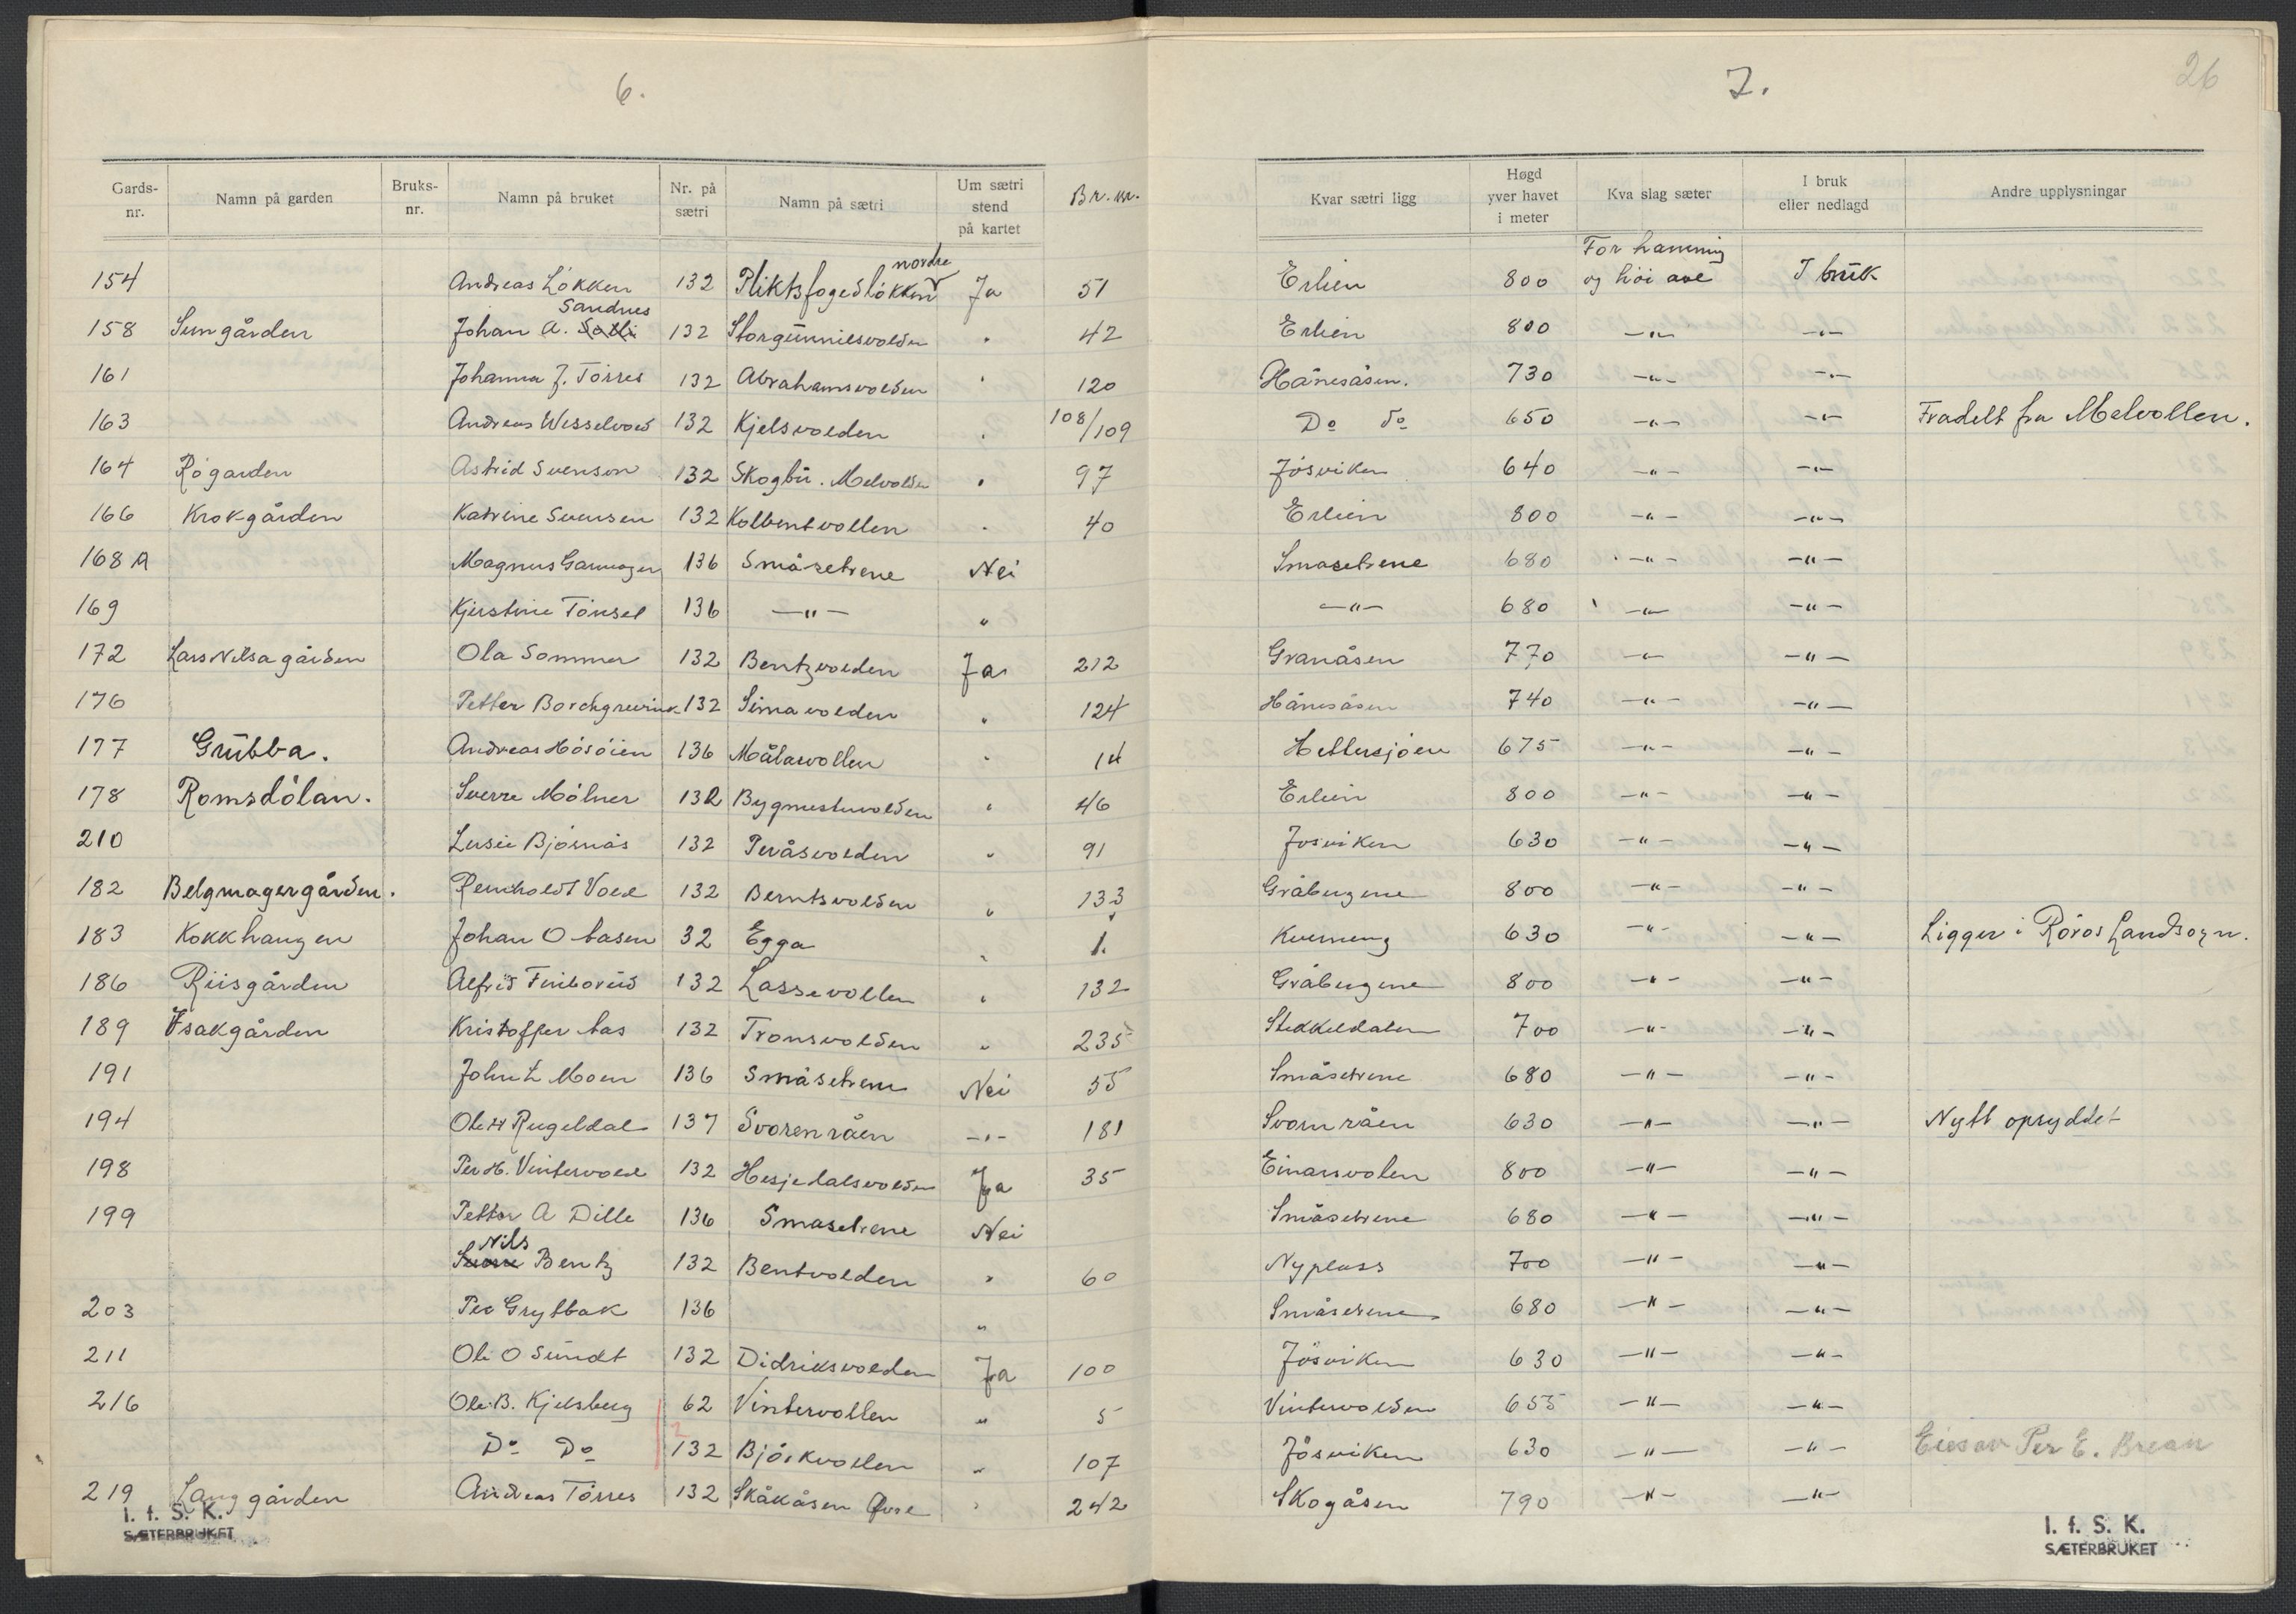 6.
Gards-nr. Namn på garden Bruks-nr. Namn på bruket Nr. på sætri Namn på sætri Um sætri stend på kartet Br. nr.
154 Andreas Løkken 132 Pliktsfogedløkken nordre Ja 51
158 Sumgården Johan A. Sandnes 132 Storgunnilsvolden " 42
161 Johanna J. Tørres 132 Abrahamsvolden " 120
163 Andreas Wesselvold 132 Kjelsvolden " 108/109
164 Rogarden Astrid Svenson 132 Skogbu. Melvolden " 97
166 Krokgården Katrine Svensen 132 Kolbentvollen " 40
168 A Magnus 136 Småsetrene Nei
169 Kjerstine Tønset 136 —"— "
172 Lars Nilsa gården Ola Sommer 132 Bentzvolden Ja 212
176 Petter Borchgrevink 132 Simavolden " 124
177 Grubba. Andreas Høsøien 136 Målarvollen " 14
178 Romsdölan. Sverre Mølner 132 Bygmestervolden " 46
210 Lusie Bjørnås 132 Peråsvolden " 91
182 Belgmagergården. Reinholdt Vold 132 Berntsvolden " 133
183 Kokkhaugen Johan O Aasen 32 Egga " 1.
186 Riisgården Alfrid Finborud 132 Lassevollen " 132
189 Isakgården Kristoffer Aas 132 Tronsvolden " 235
191 John L Moen 136 Småsetrene Nei 55
194 Ole H Rugeldal 137 Svorenråen —"— 181
198 Per H. Vintervold 132 Hesjedalsvolden Ja 35
199 Petter A Dille 136 Smasetrene Nei
Nils Bentz 132 Bentvolden " 60
203 Per Grytbak 136 "
211 Ole O Sundt 132 Didriksvolden Ja 100
216 Ole B. Kjelsberg 62 Vintervollen " 5
Do Do 132 Bjørkvollen " 107
219 Langgården Andreas Tørres 132 Skåkåsen Øvre " 242
I. f. S. K.
SÆTERBRUKET
7.
26
Kvar sætri ligg Høgd yver havet i meter Kva slag sæter I bruk eller nedlagd Andre upplysningar
Erlien 800 For hamning og høi avl I bruk
Erlien 800 —"— —"—
Hånesåsen. 730 —"— —"—
Do do 650 —"— —"— Fradelt fra Melvollen.
Jösviken 640 —"— —"—
Erlien 800 —"— —"—
Smasetrene 680 —"— —"—
—"— 680 —"— —"—
Granåsen 770 —"— —"—
Hånesåsen 740 —"— —"—
Hittersjöen 675 —"— —"—
Erlien 800 —"— —"—
Josviken 630 —"— —"—
Gråbergene 800 —"— —"—
Kverneng 630 —"— —"— Ligger i Röros Landsogn.
Gråbergene 800 —"— —"—
Stekkeldalen 700 —"— —"—
Småsetrene 680 —"— —"—
Svornråen 630 —"— —"— Nytt opryddet
Einarsvolen 800 —"— —"—
Småsetrene 680 —"— —"—
Nyplass 700 —"— —"—
Småsetrene 680 —"— —"—
Jösviken 630 —"— —"—
Vintervolden 655 —"— —"—
Jösviken 630 —"— —"— Eies av Per E. Brean
Skogåsen 790 —"— —"—
I. f. S. K.
SÆTERBRUKET